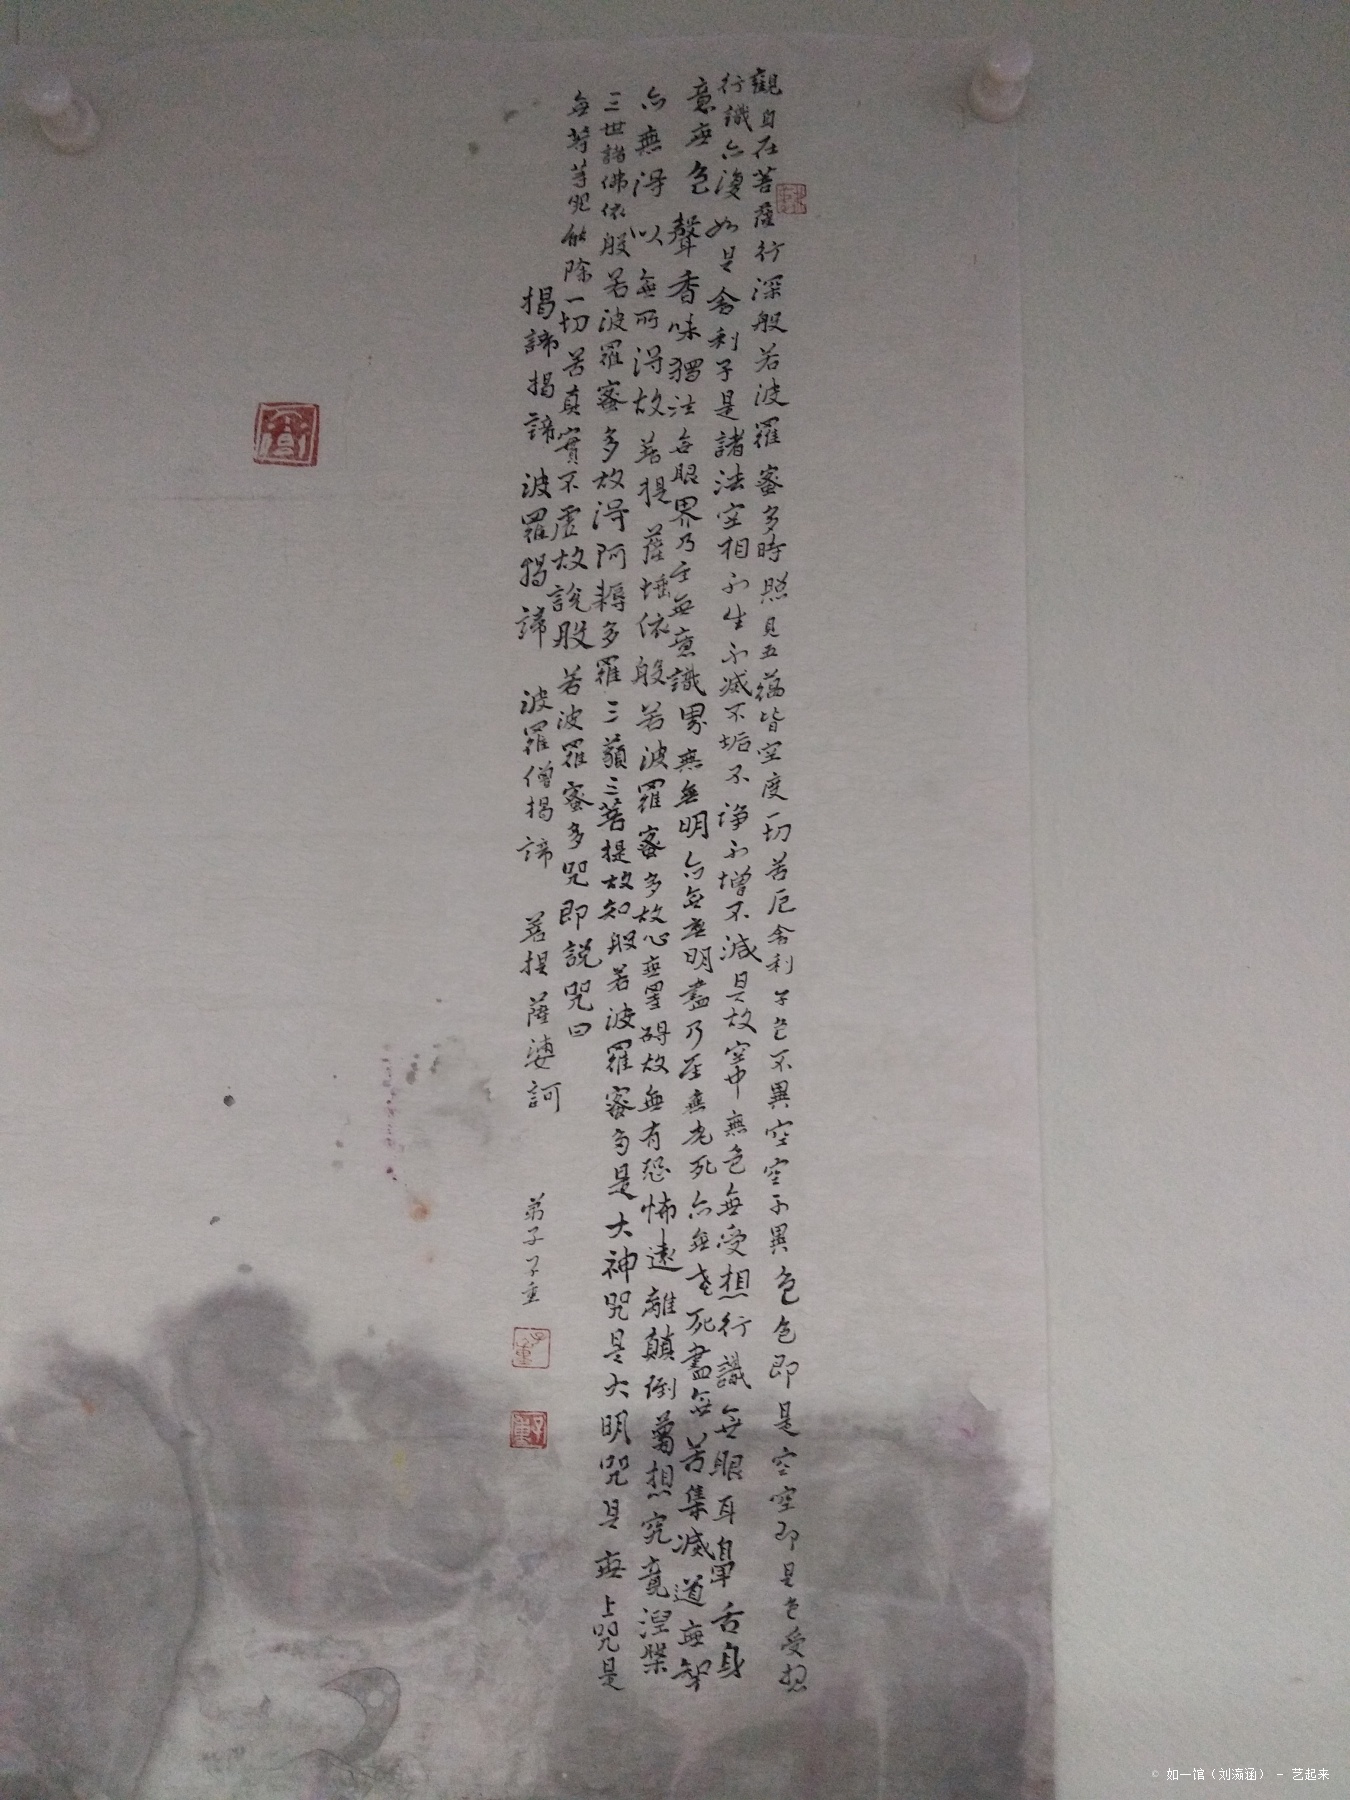 觀自在菩薩行深般若波羅蜜多時照見五蘊皆空度一切苦厄舍利子色不異空空不異色色即是空空即是色受想
行識亦復如是舍利子是諸法空相不生不滅不垢不淨不增不減是故空中無色無受想行識無眼耳鼻舌身
意無色聲香味觸法無眼界乃至無意識界無無明亦無無明盡乃至無老死亦無老死盡無苦集滅道無智
亦無得以無所得故菩提薩埵依般若波羅蜜多故心無罣碍故無有恐怖遠離顛倒夢想究竟涅槃
三世諸佛依般若波羅蜜多故得阿耨多羅三藐三菩提故知般若波羅蜜多是大神咒是大明咒是無上咒是
無等等咒能除一切苦真實不虛故說般若波羅蜜多咒即說咒曰
揭諦揭諦 波羅揭諦 波羅僧揭諦 菩提薩婆訶 弟子子重
子重
子重
© 如一馆（刘瀛涵） - 艺起来